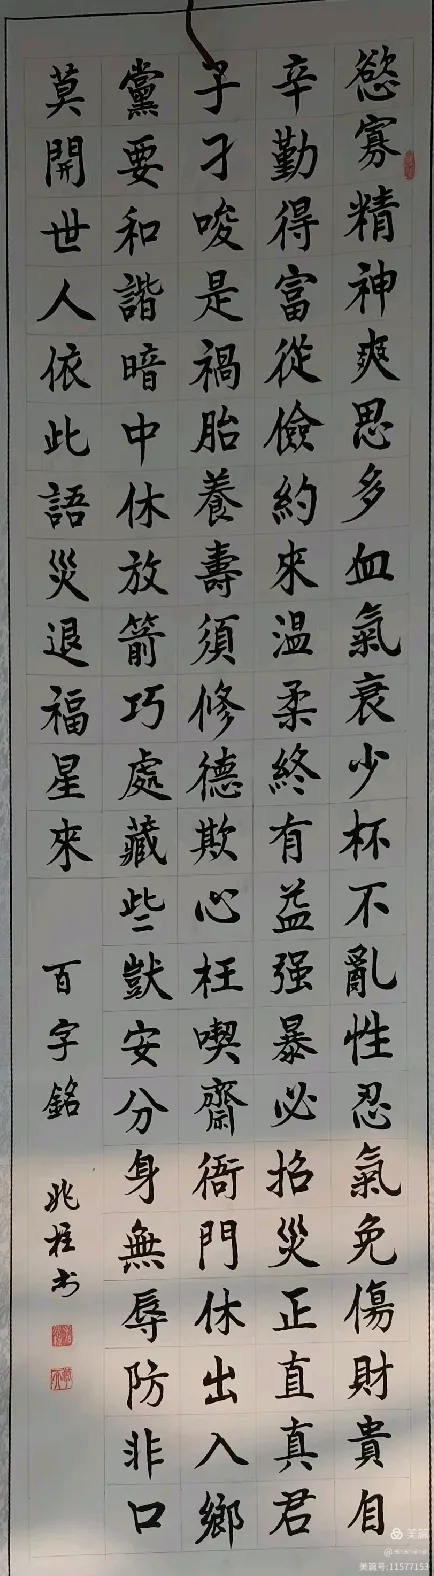 慾寡精神爽思多血氣衰少杯不亂性忍氣免傷財貴自
辛勤得富從儉約來温柔終有益强暴必招災正直真君
子刁唆是禍胎養壽須修德欺心枉喫齋衙門休出入鄉
黨要和諧暗中休放箭巧處藏些獃安分身無辱防非口
莫開世人依此語災退福星來
百字銘 兆柱书
美篇
美篇号:11577153